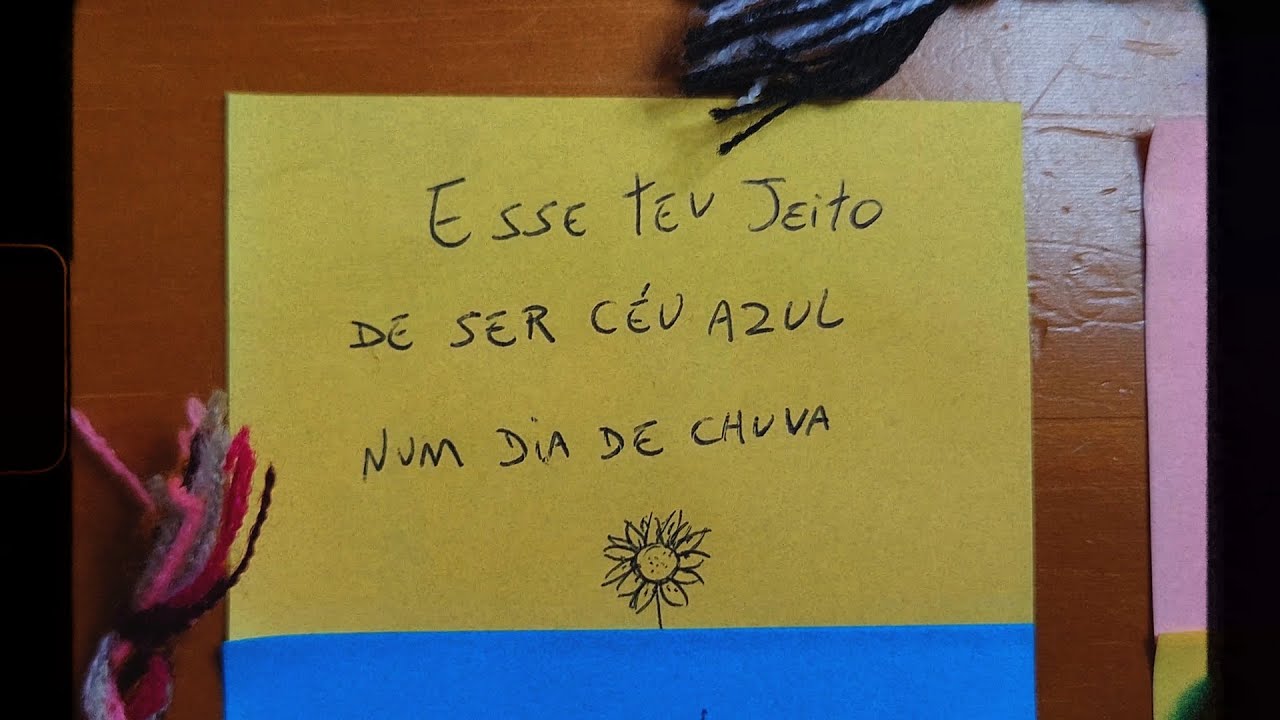 Esse teu Jeito
DE SER CÉU AZUL
NUM DiA DE CHUVA